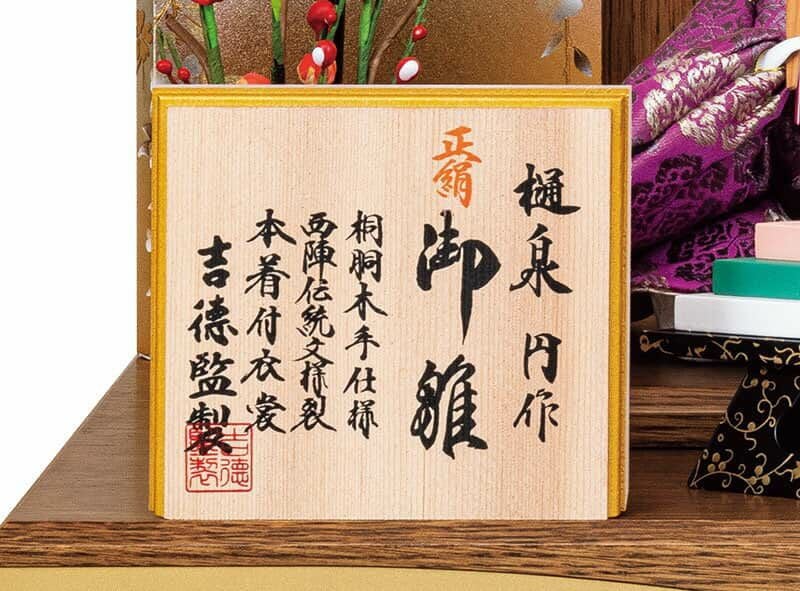 樋泉 円作
正絹
御雛
桐胴木手仕様
西陣伝統文様裂
本着付衣裳
吉德監製
吉德監製